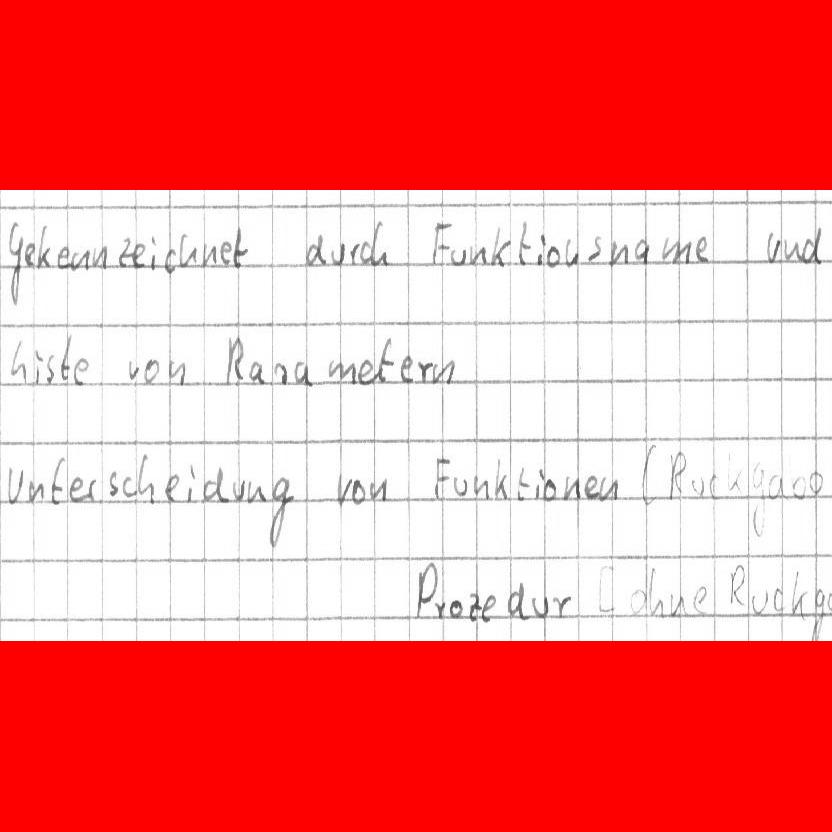 Gekennzeichnet durch Funktionsname und
Liste von Parametern
Unterscheidung von Funktionen (Ruckgabe
Prozedur (ohne Ruckga